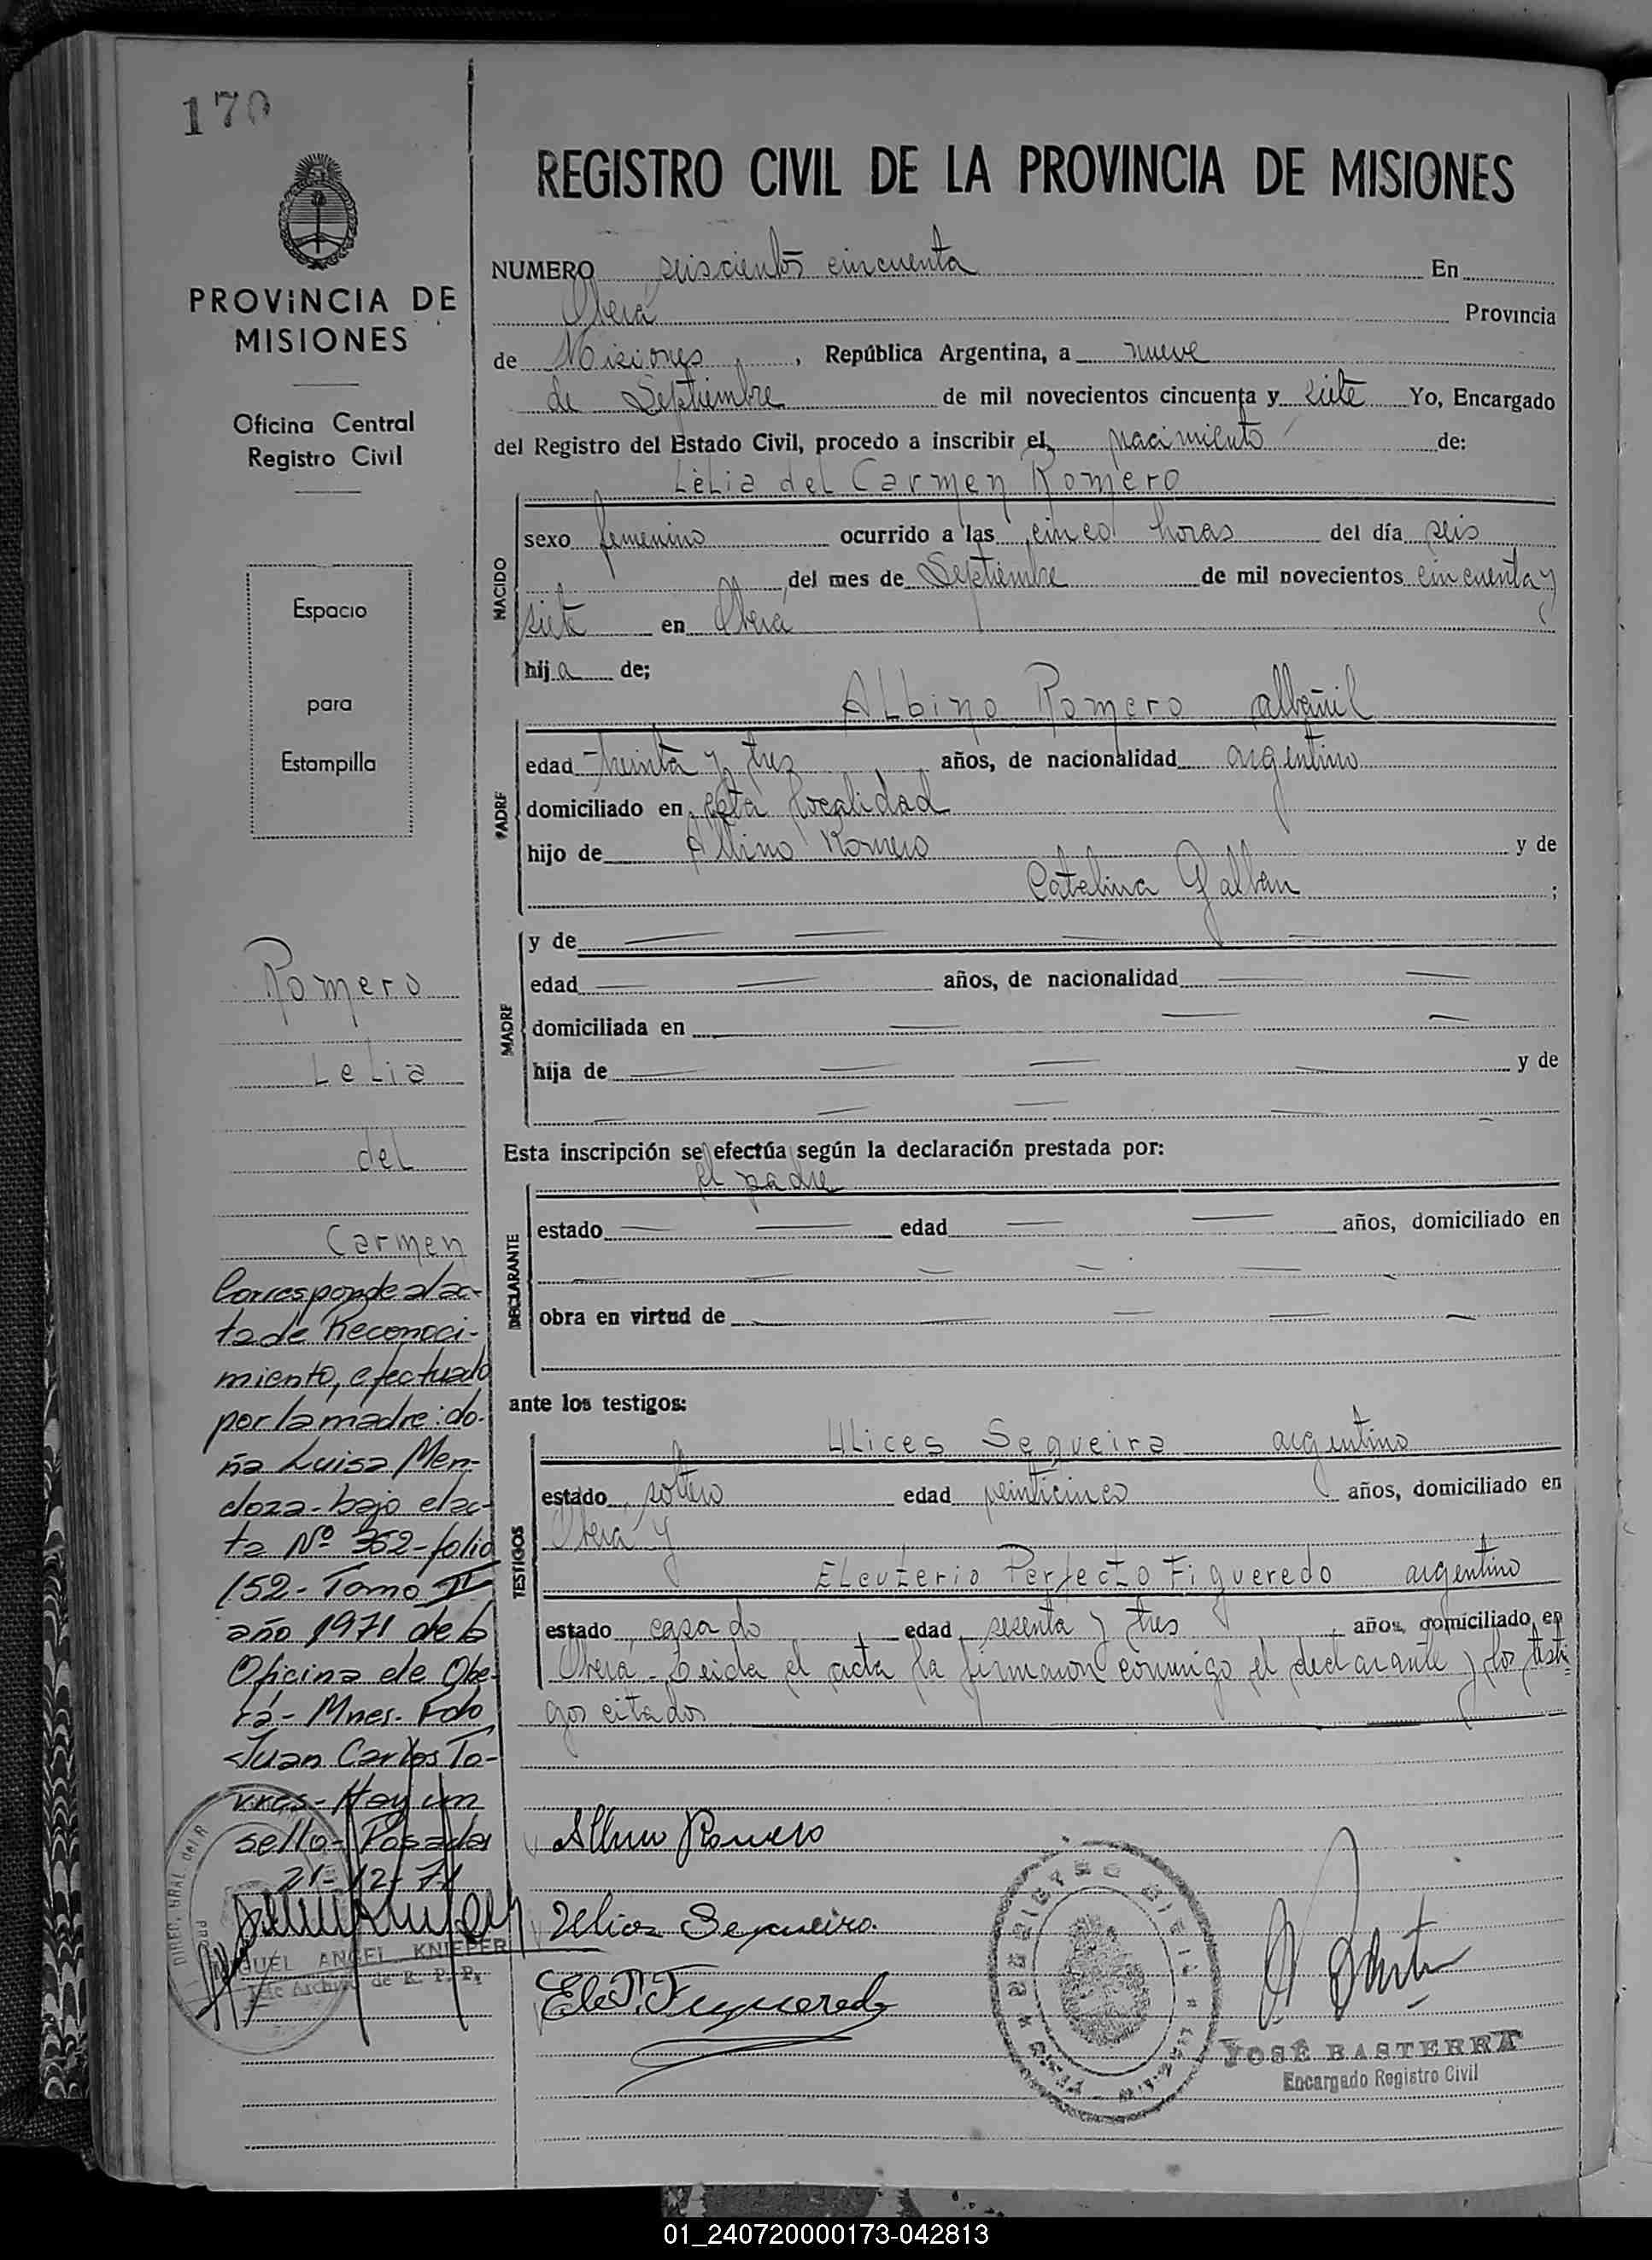 170
PROVINCIA DE
MISIONES
Oficina Central
Registro Civil
Espacio
para
Estampilla
Romero
Lelia
del
Carmen
Corresponde al ac-
ta de Reconoci-
miento, efectuado
por la madre: do-
ña Luisa Men-
doza - bajo el ac-
ta Nº 352 - folio
152 - Tomo II
año 1971 de la
Oficina de Obe-
rá - Mnes. Fdo
Juan Carlos To-
rres - Hay un
sello - Posadas
21-12-71
MIGUEL ANGEL KNIEPER
Archivo de R. P. P.
DIREC. GRAL. del R
REGISTRO CIVIL DE LA PROVINCIA DE MISIONES
NUMERO seiscientos cincuenta En
Oberá Provincia
de Misiones, República Argentina, a nueve
de Septiembre de mil novecientos cincuenta y siete Yo, Encargado
del Registro del Estado Civil, procedo a inscribir el nacimiento de:
Lelia del Carmen Romero
NACIDO
sexo femenino ocurrido a las cinco horas del día seis
del mes de Septiembre de mil novecientos cincuenta y
siete en Oberá
hija de;
Albino Romero albañil
PADRE
edad treinta y tres años, de nacionalidad argentino
domiciliado en esta localidad
hijo de Albino Romero y de
Catalina Galban ;
MADRE
y de
edad años, de nacionalidad
domiciliada en
hija de y de
Esta inscripción se efectúa según la declaración prestada por:
el padre
DECLARANTE
estado edad años, domiciliado en
obra en virtud de
ante los testigos:
Ulices Seqveira argentino
TESTIGOS
estado soltero edad veinticinco años, domiciliado en
Oberá y
Eleuterio Perfecto Figueredo argentino
estado casado edad sesenta y tres años, domiciliado en
Oberá - Leida el acta la firmaron conmigo el declarante y los testi-
gos citados
Albino Romero
Ulices Sequeira.
Ele P. Figueredo
REGISTRO CIVIL
JOSÉ BASTERRA
Encargado Registro Civil
01_240720000173-042813